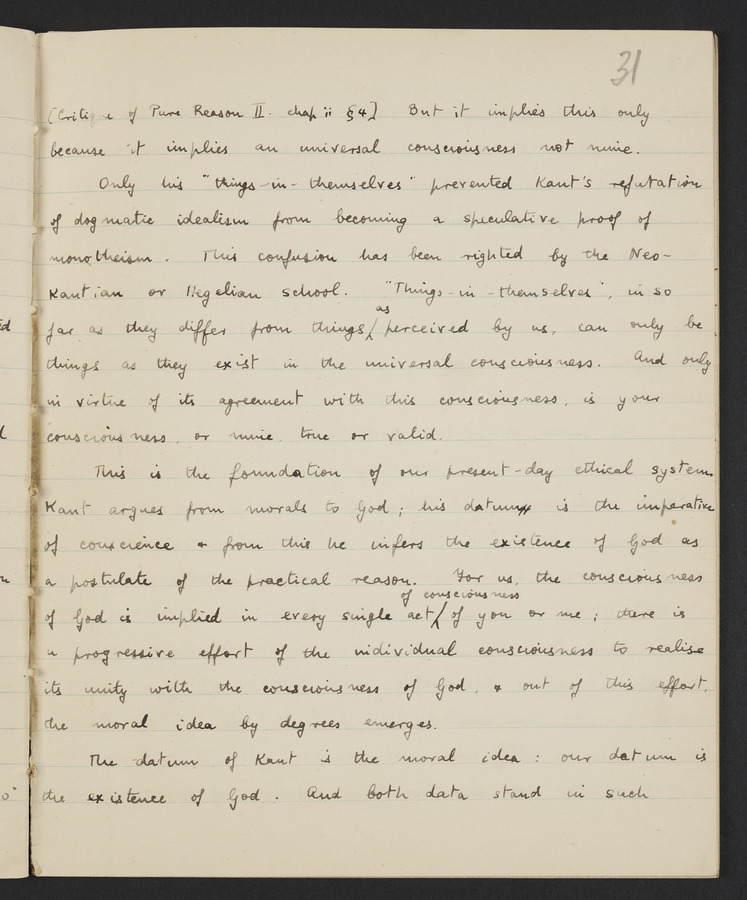 31
[Critique of Pure Reason II. chap ii §4] But it implies this only
because it implies an universal consciousness not mine.
Only his "things-in-themselves" prevented Kant's refutation
of dogmatic idealism from becoming a speculative proof of
monotheism. This confusion has been righted by the Neo-
Kantian or Hegelian school. "Things-in-themselves", in so
far as they differ from things as perceived by us, can only be
things as they exist in the universal consciousness. And only
in virtue of its agreement with this consciousness, is your
consciousness, or mine, true or valid.
This is the foundation of our present-day ethical system.
Kant argues from morals to God; his datum is the imperative
of conscience & from this he infers the existence of God as
a postulate of the practical reason. For us, the consciousness
of God is implied in every single act of consciousness of you or me; there is
a progressive effort of the individual consciousness to realise
its unity with the consciousness of God, & out of this effort,
the moral idea by degrees emerges.
The datum of Kant is the moral idea: our datum is
the existence of God. And both data stand in such